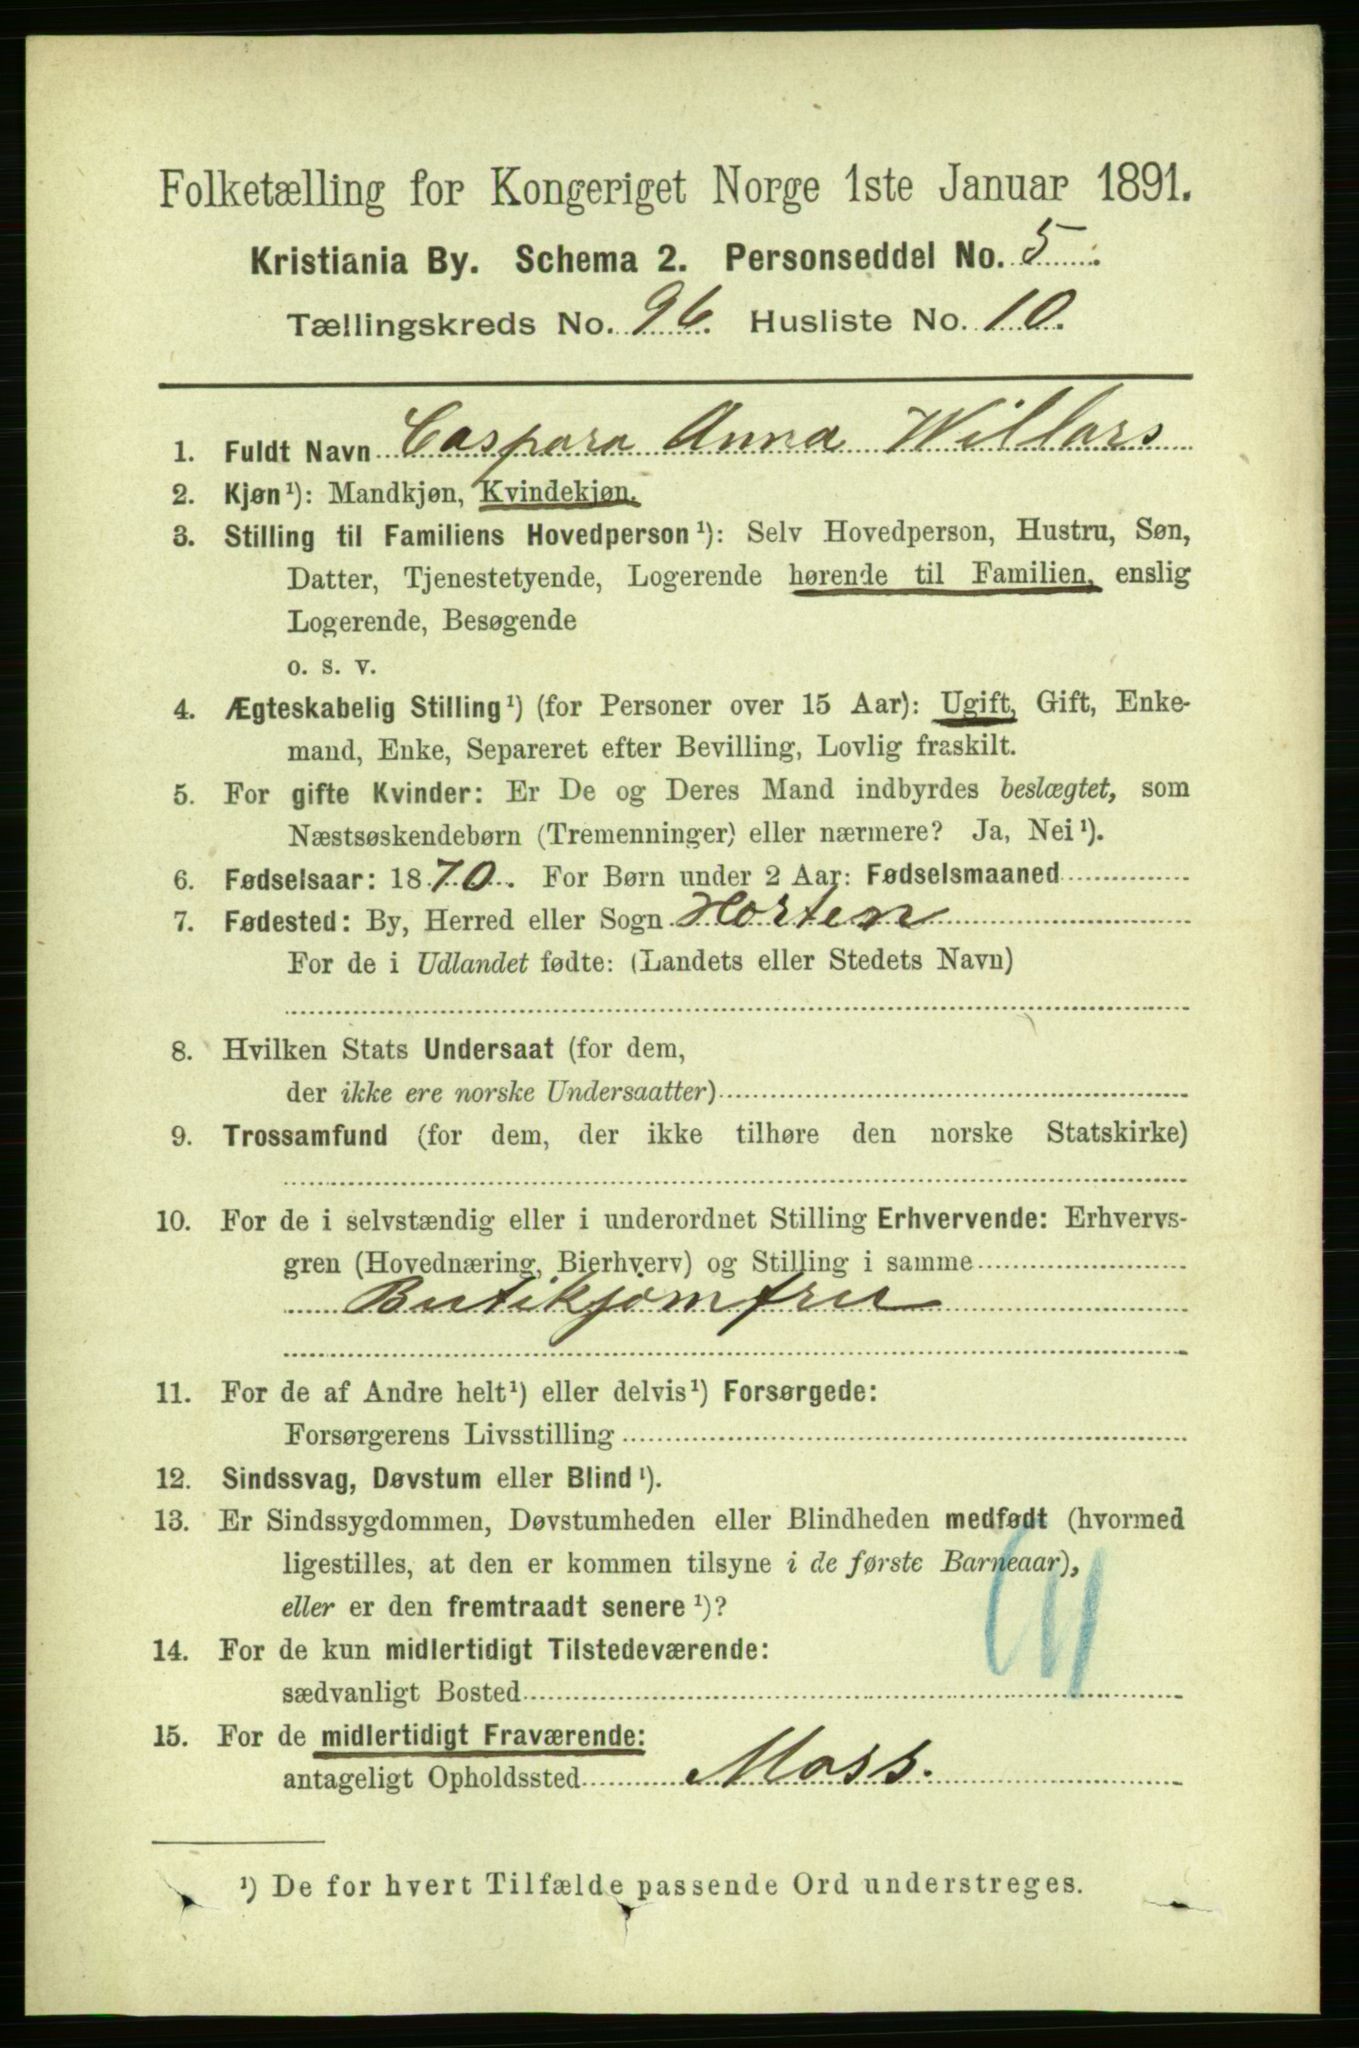 Folketælling for Kongeriget Norge 1ste Januar 1891.
Kristiania By. Schema 2. Personseddel No. 5.
Tællingskreds No. 96. Husliste No. 10.
1. Fuldt Navn Caspara Anna Willars
2. Kjøn¹): Mandkjøn, Kvindekjøn.
3. Stilling til Familiens Hovedperson¹): Selv Hovedperson, Hustru, Søn,
Datter, Tjenestetyende, Logerende hørende til Familien, enslig
Logerende, Besøgende
o. s. v.
4. Ægteskabelig Stilling¹) (for Personer over 15 Aar): Ugift, Gift, Enke-
mand, Enke, Separeret efter Bevilling, Lovlig fraskilt.
5. For gifte Kvinder: Er De og Deres Mand indbyrdes beslægtet, som
Næstsøskendebørn (Tremenninger) eller nærmere? Ja, Nei¹).
6. Fødselsaar: 1870. For Børn under 2 Aar: Fødselsmaaned
7. Fødested: By, Herred eller Sogn Horten
For de i Udlandet fødte: (Landets eller Stedets Navn)
8. Hvilken Stats Undersaat (for dem,
der ikke ere norske Undersaatter)
9. Trossamfund (for dem, der ikke tilhøre den norske Statskirke)
10. For de i selvstændig eller i underordnet Stilling Erhvervende: Erhvervs-
gren (Hovednæring, Bierhverv) og Stilling i samme
Butikjomfru
11. For de af Andre helt¹) eller delvis¹) Forsørgede:
Forsørgerens Livsstilling
12. Sindssvag, Døvstum eller Blind¹).
13. Er Sindssygdommen, Døvstumheden eller Blindheden medfødt (hvormed
ligestilles, at den er kommen tilsyne i de første Barneaar),
eller er den fremtraadt senere¹)?
14. For de kun midlertidigt Tilstedeværende:
sædvanligt Bosted
15. For de midlertidigt Fraværende:
antageligt Opholdssted Moss.
¹) De for hvert Tilfælde passende Ord understreges.